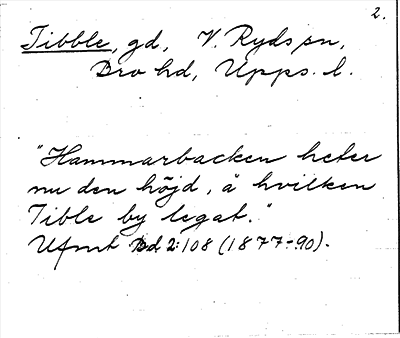 2.
Tibble, gd, V. Ryds sn,
Bro hd, Upps. l.
"Hammarbacken heter
nu den höjd, å hvilken
Tible by legat."
Ufmt Bd 2:108 (1877-90).